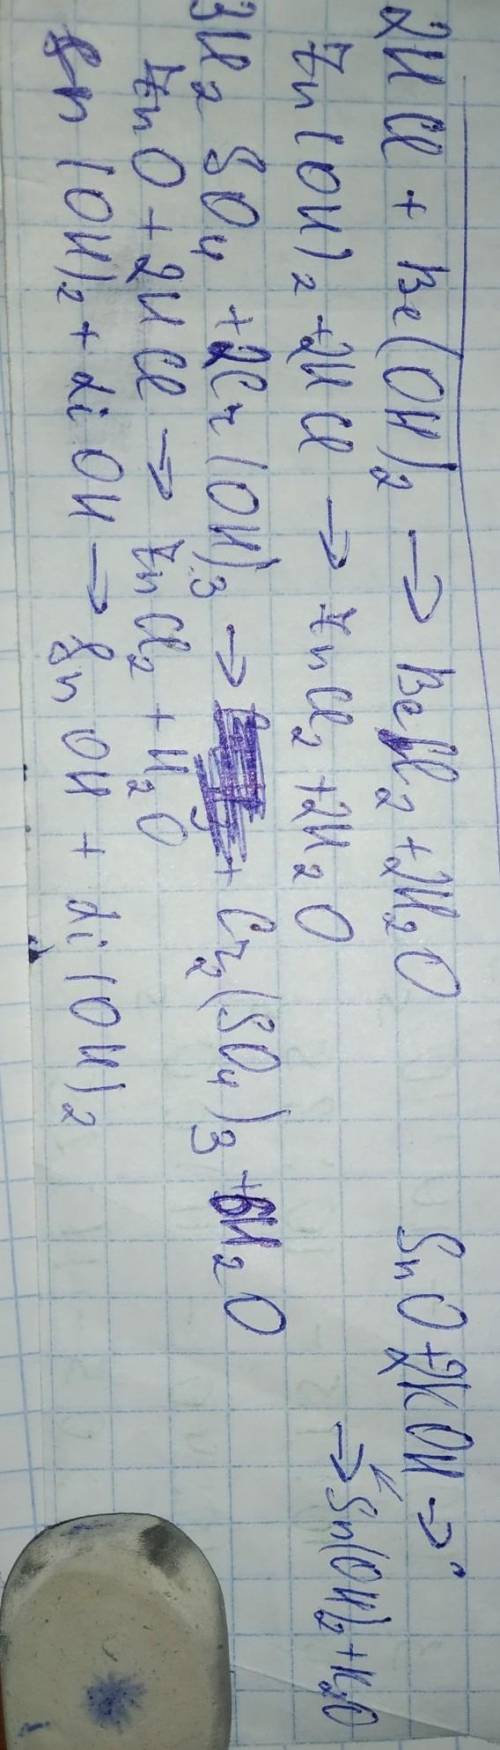 2HCl + Be(OH)2 → BeCl2 + 2H2O
Zn(OH)2 + 2HCl → ZnCl2 + 2H2O
3H2SO4 + 2Cr(OH)3 → + Cr2(SO4)3 + 6H2O
ZnO + 2HCl → ZnCl2 + H2O
Sn(OH)2 + LiOH → SnOH + Li(OH)2
SnO + 2KOH →
→ Sn(OH)2 + K2O